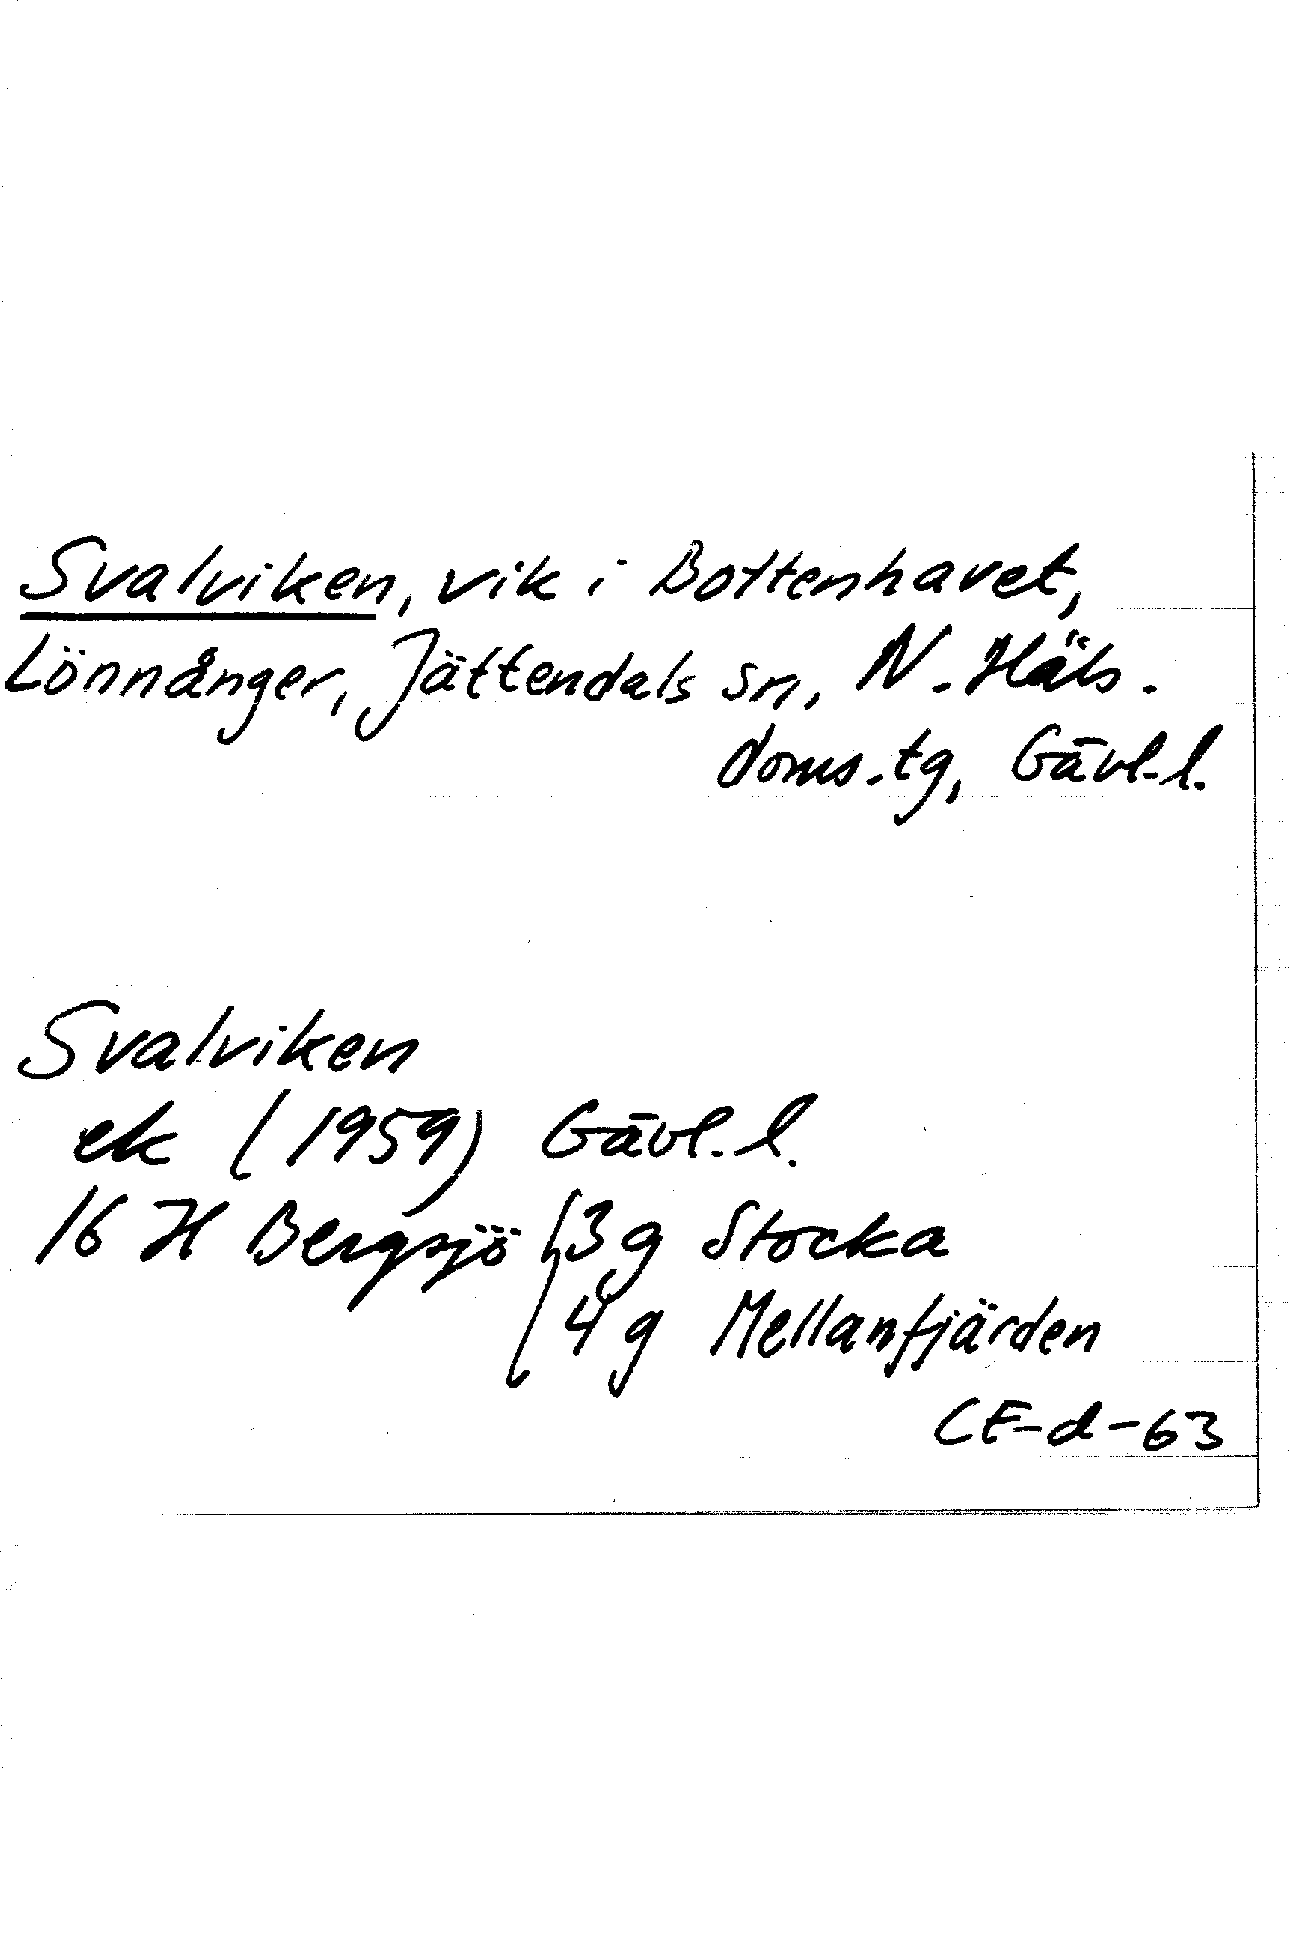 Svalviken, vik i Bottenhavet,
Lönnånger, Jättendals sn, N. Häls.
doms.tg, Gävl.l.
Svalviken
ek (1959) Gävl.l.
16 H Bergsjö { 3g Stocka
4g Mellanfjärden
CE-d-63